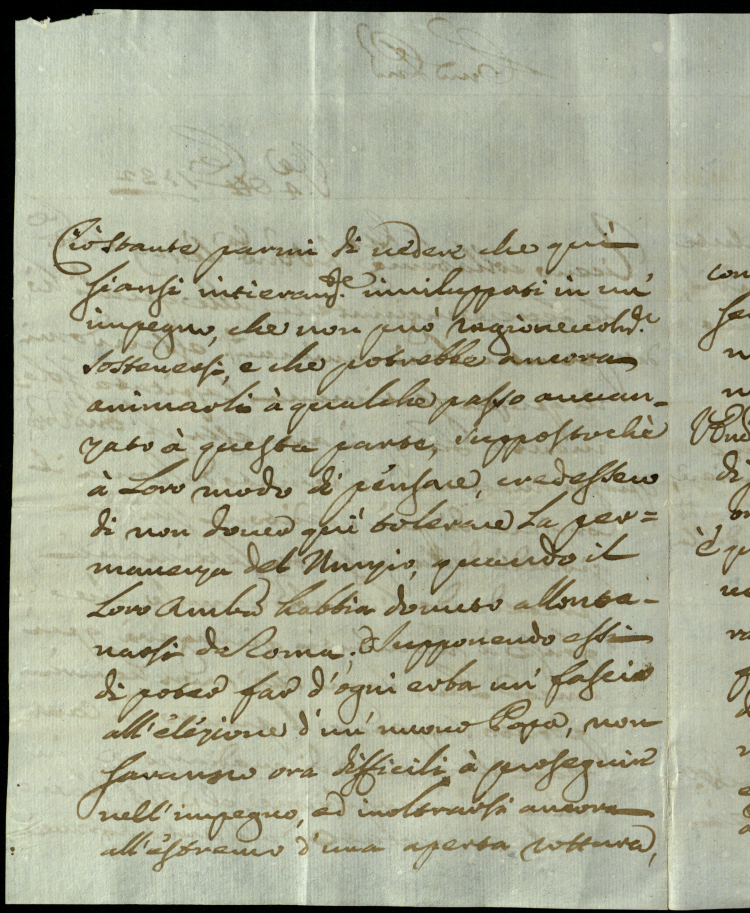 Ciò stante parmi di vedere che quì
siansi intieram.te inviluppati in un'
impegno, che non può ragionevolm.te
sostenersi, e che potrebbe ancora
animarli à qualche passo avvan-
zato à questa parte, suppostochè
à Loro modo di pensare, credessero
di non dover quì tolerare La per=
manenza del Nunzio, quando il
Loro Amb.r habbia dovuto allonta-
narsi da Roma; Supponendo essi
di poter far d'ogni erba un' fascio
all'élezione d'un' nuovo Papa, non
saranno ora difficili à proseguire
nell'impegno, ed inoltrarsi ancora
all'éstremo d'una aperta rottura,
con
di
è qu